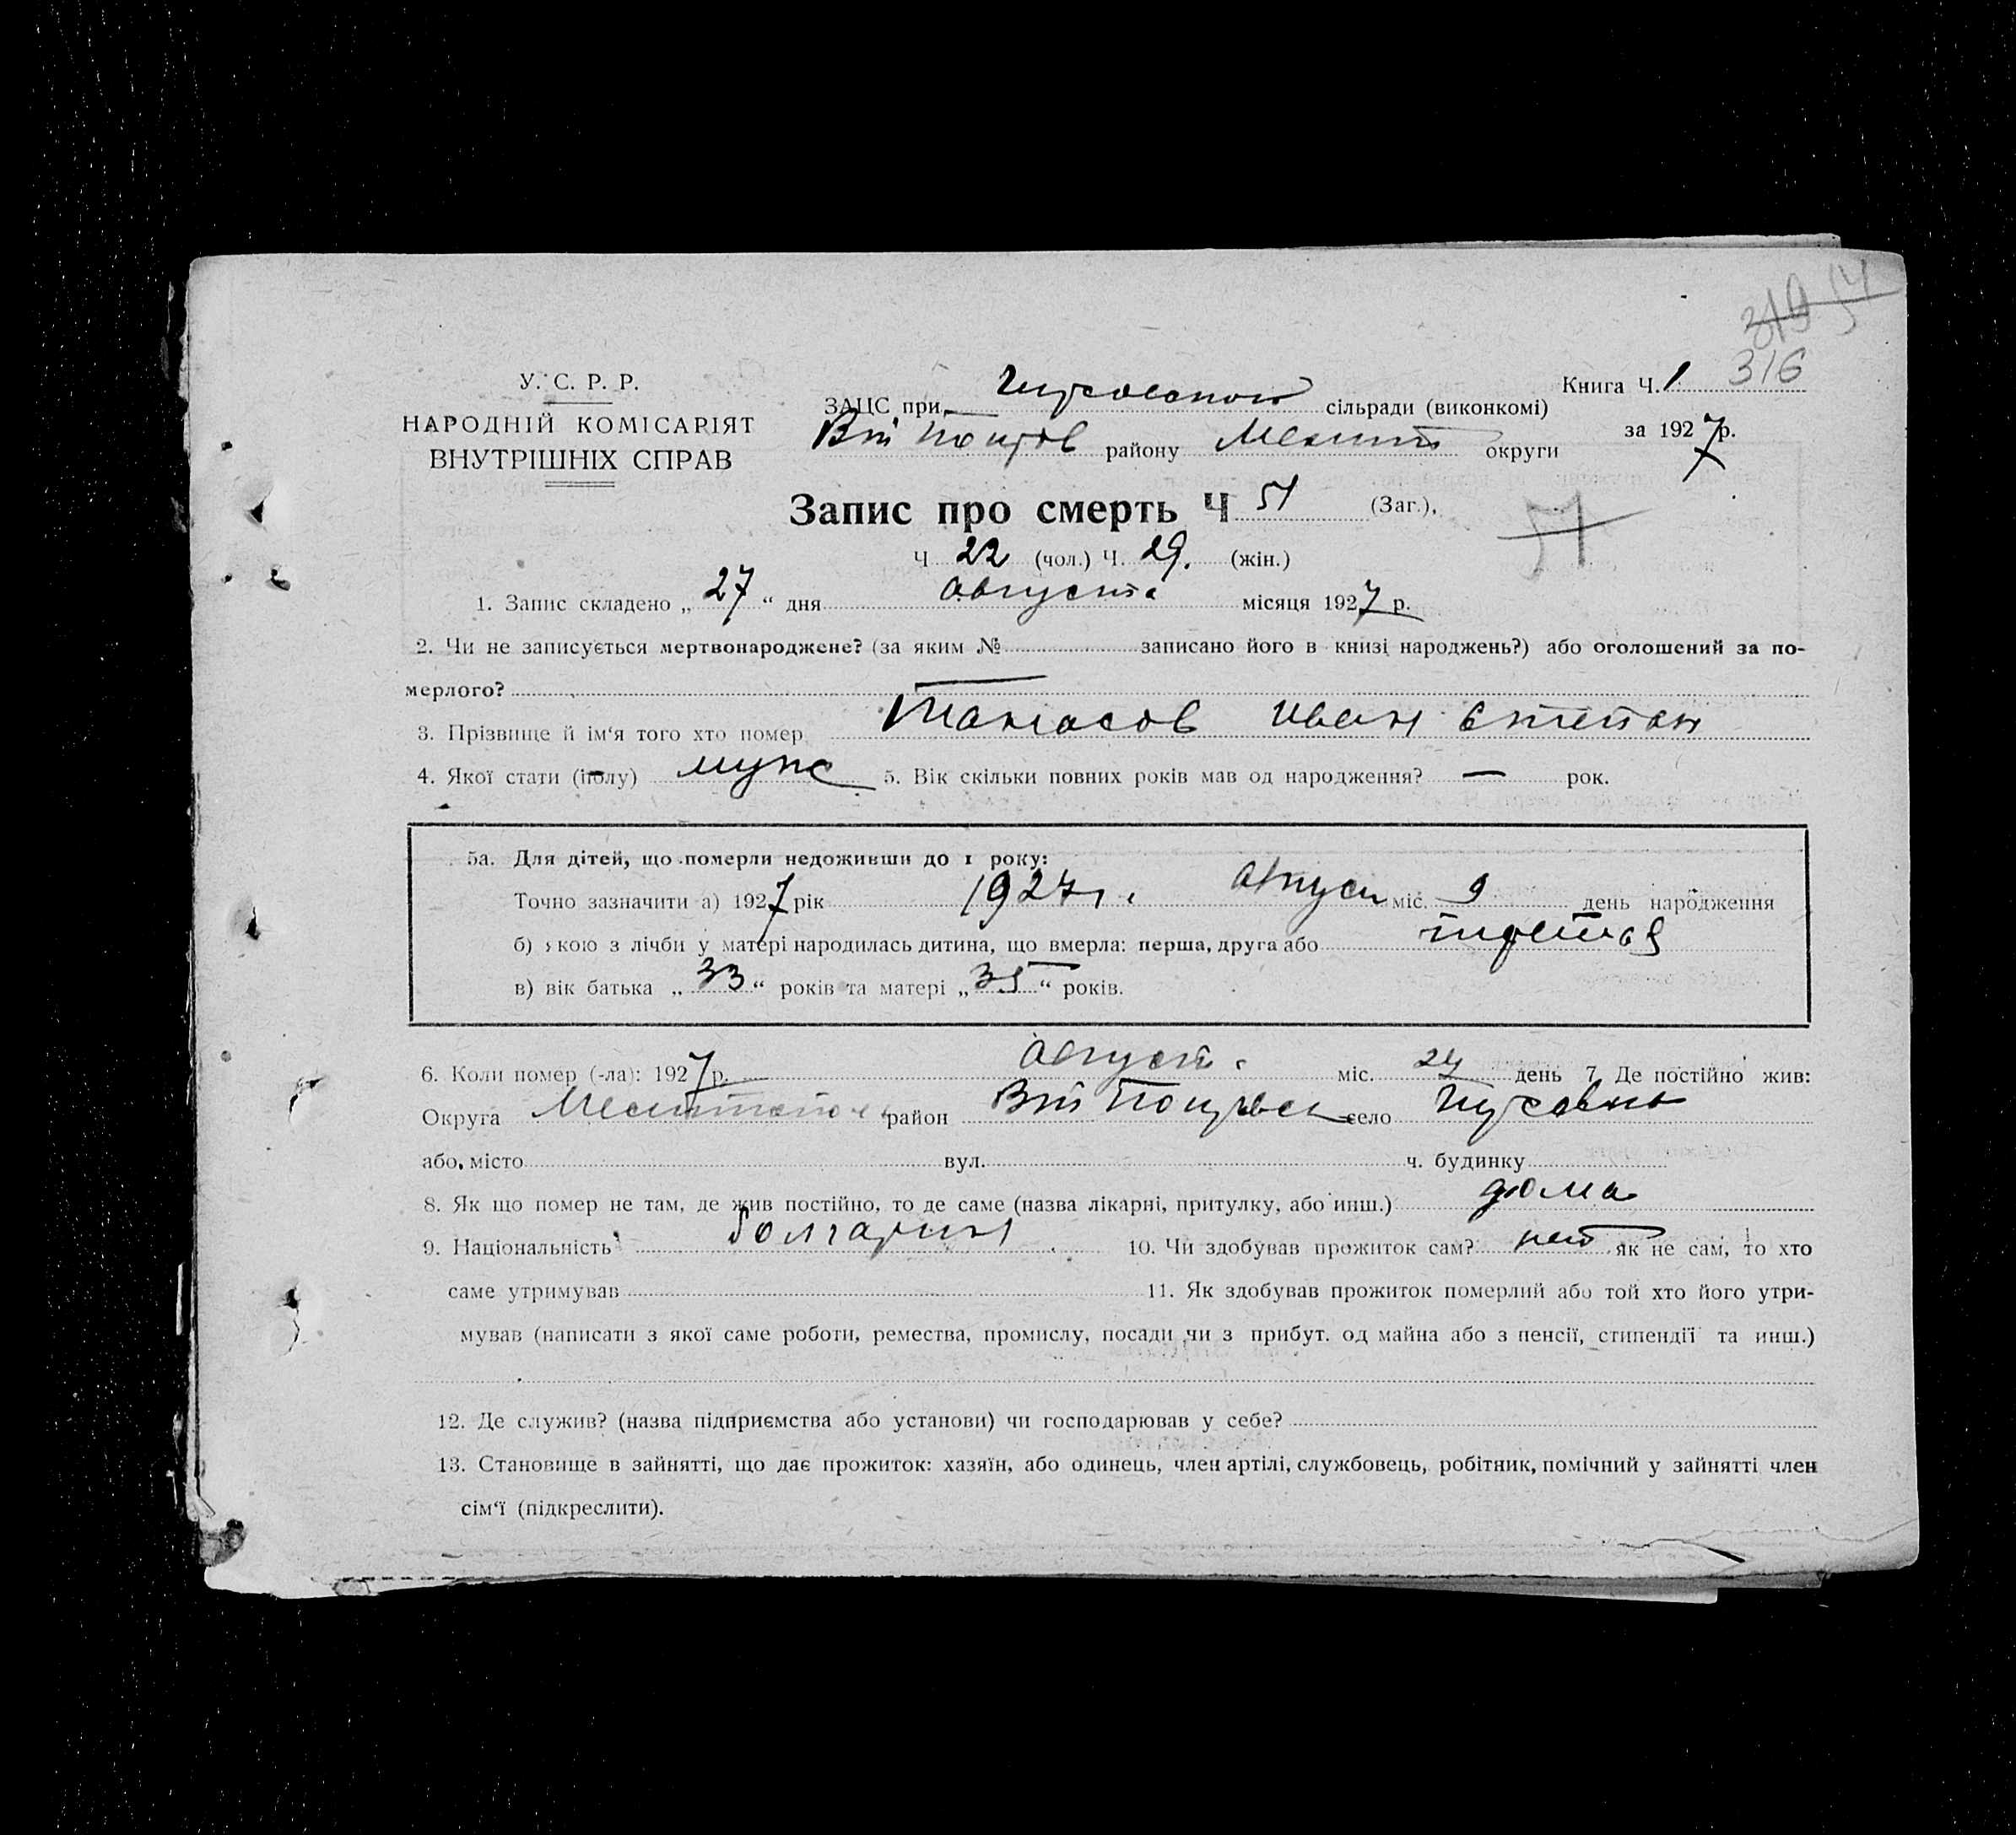 319 54
316
У. С. Р. Р.
НАРОДНІЙ КОМІСАРІЯТ
ВНУТРІШНІХ СПРАВ
ЗАЦС при сільради (виконкомі)
району Мелит округи
Книга Ч. 1
за 1927 р.
Запис про смерть Ч 51 (Заг.),
51
Ч 22 (чол.) Ч. 29. (жін.)
1. Запис складено „ 27 “ дня августа місяця 1927 р.
2. Чи не записується мертвонароджене? (за яким № записано його в книзі народжень?) або оголошений за по-
мерлого?
3. Прізвище й ім‘я того хто помер Танасов Иван Степан
4. Якої стати (полу) муж 5. Вік скільки повних років мав од народження? — рок.
5а. Для дітей, що померли недоживши до 1 року:
Точно зазначити а) 1927 рік 1927 г. август міс. 9 день народження
б) якою з лічби у матері народилась дитина, що вмерла: перша, друга або третяя
в) вік батька „ 33 “ років та матері „ 35 “ років.
6. Коли помер (-ла): 1927 р. август. міс. день 7. Де постійно жив:
Округа район село
або, місто вул. ч. будинку
8. Як що помер не там, де жив постійно, то де саме (назва лікарні, притулку, або инш.) дома
9. Національність болгарин 10. Чи здобував прожиток сам? нет як не сам, то хто
саме утримував 11. Як здобував прожиток померлий або той хто його утри-
мував (написати з якої саме роботи, ремества, промислу, посади чи з прибут. од майна або з пенсії, стипендії та инш.)
12. Де служив? (назва підприємства або установи) чи господарював у себе?
13. Становище в зайнятті, що дає прожиток: хазяїн, або одинець, член артілі, службовець, робітник, помічний у зайнятті член
сім‘ї (підкреслити).